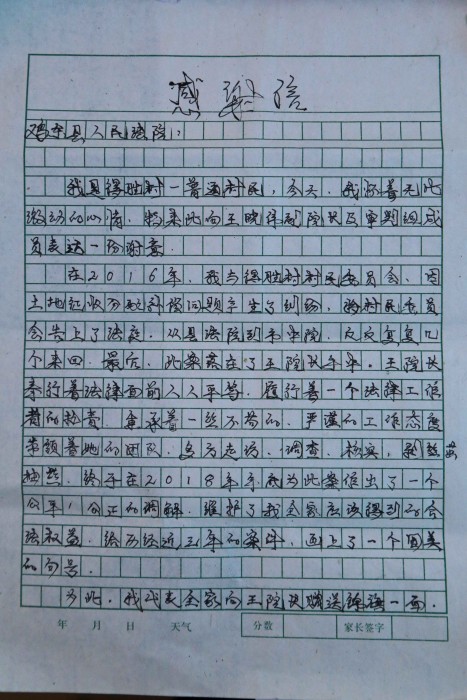 感谢信
鸡东县人民法院:
我是得胜村一普通村民,今天,我怀着无比
激动的心情,特来此向王晓佳副院长及审判组成
员表达一份谢意
在2016年,我与得胜村村民委员会,因
土地征收分配补偿问题产生了纠纷,将村民委员
会告上了法庭。从县法院到市中院,反反复复几
个来回,最后,此案落在了王院长手中。王院长
奉行着法律面前人人平等,履行着一个法律工作
者的执责,秉承着一丝不苟的,严谨的工作态度
带领着她的团队,多方走访,调查,核实,
终于在2018年年底为此案作出了一个
公平,公正的调解,维护了我全家应该得到的合
法权益,给历经近三年的案件,画上了一个圆美
的句号。
为此,我代表全家向王院长赠送锦旗一面。
年 月 日 天气 分数 家长签字